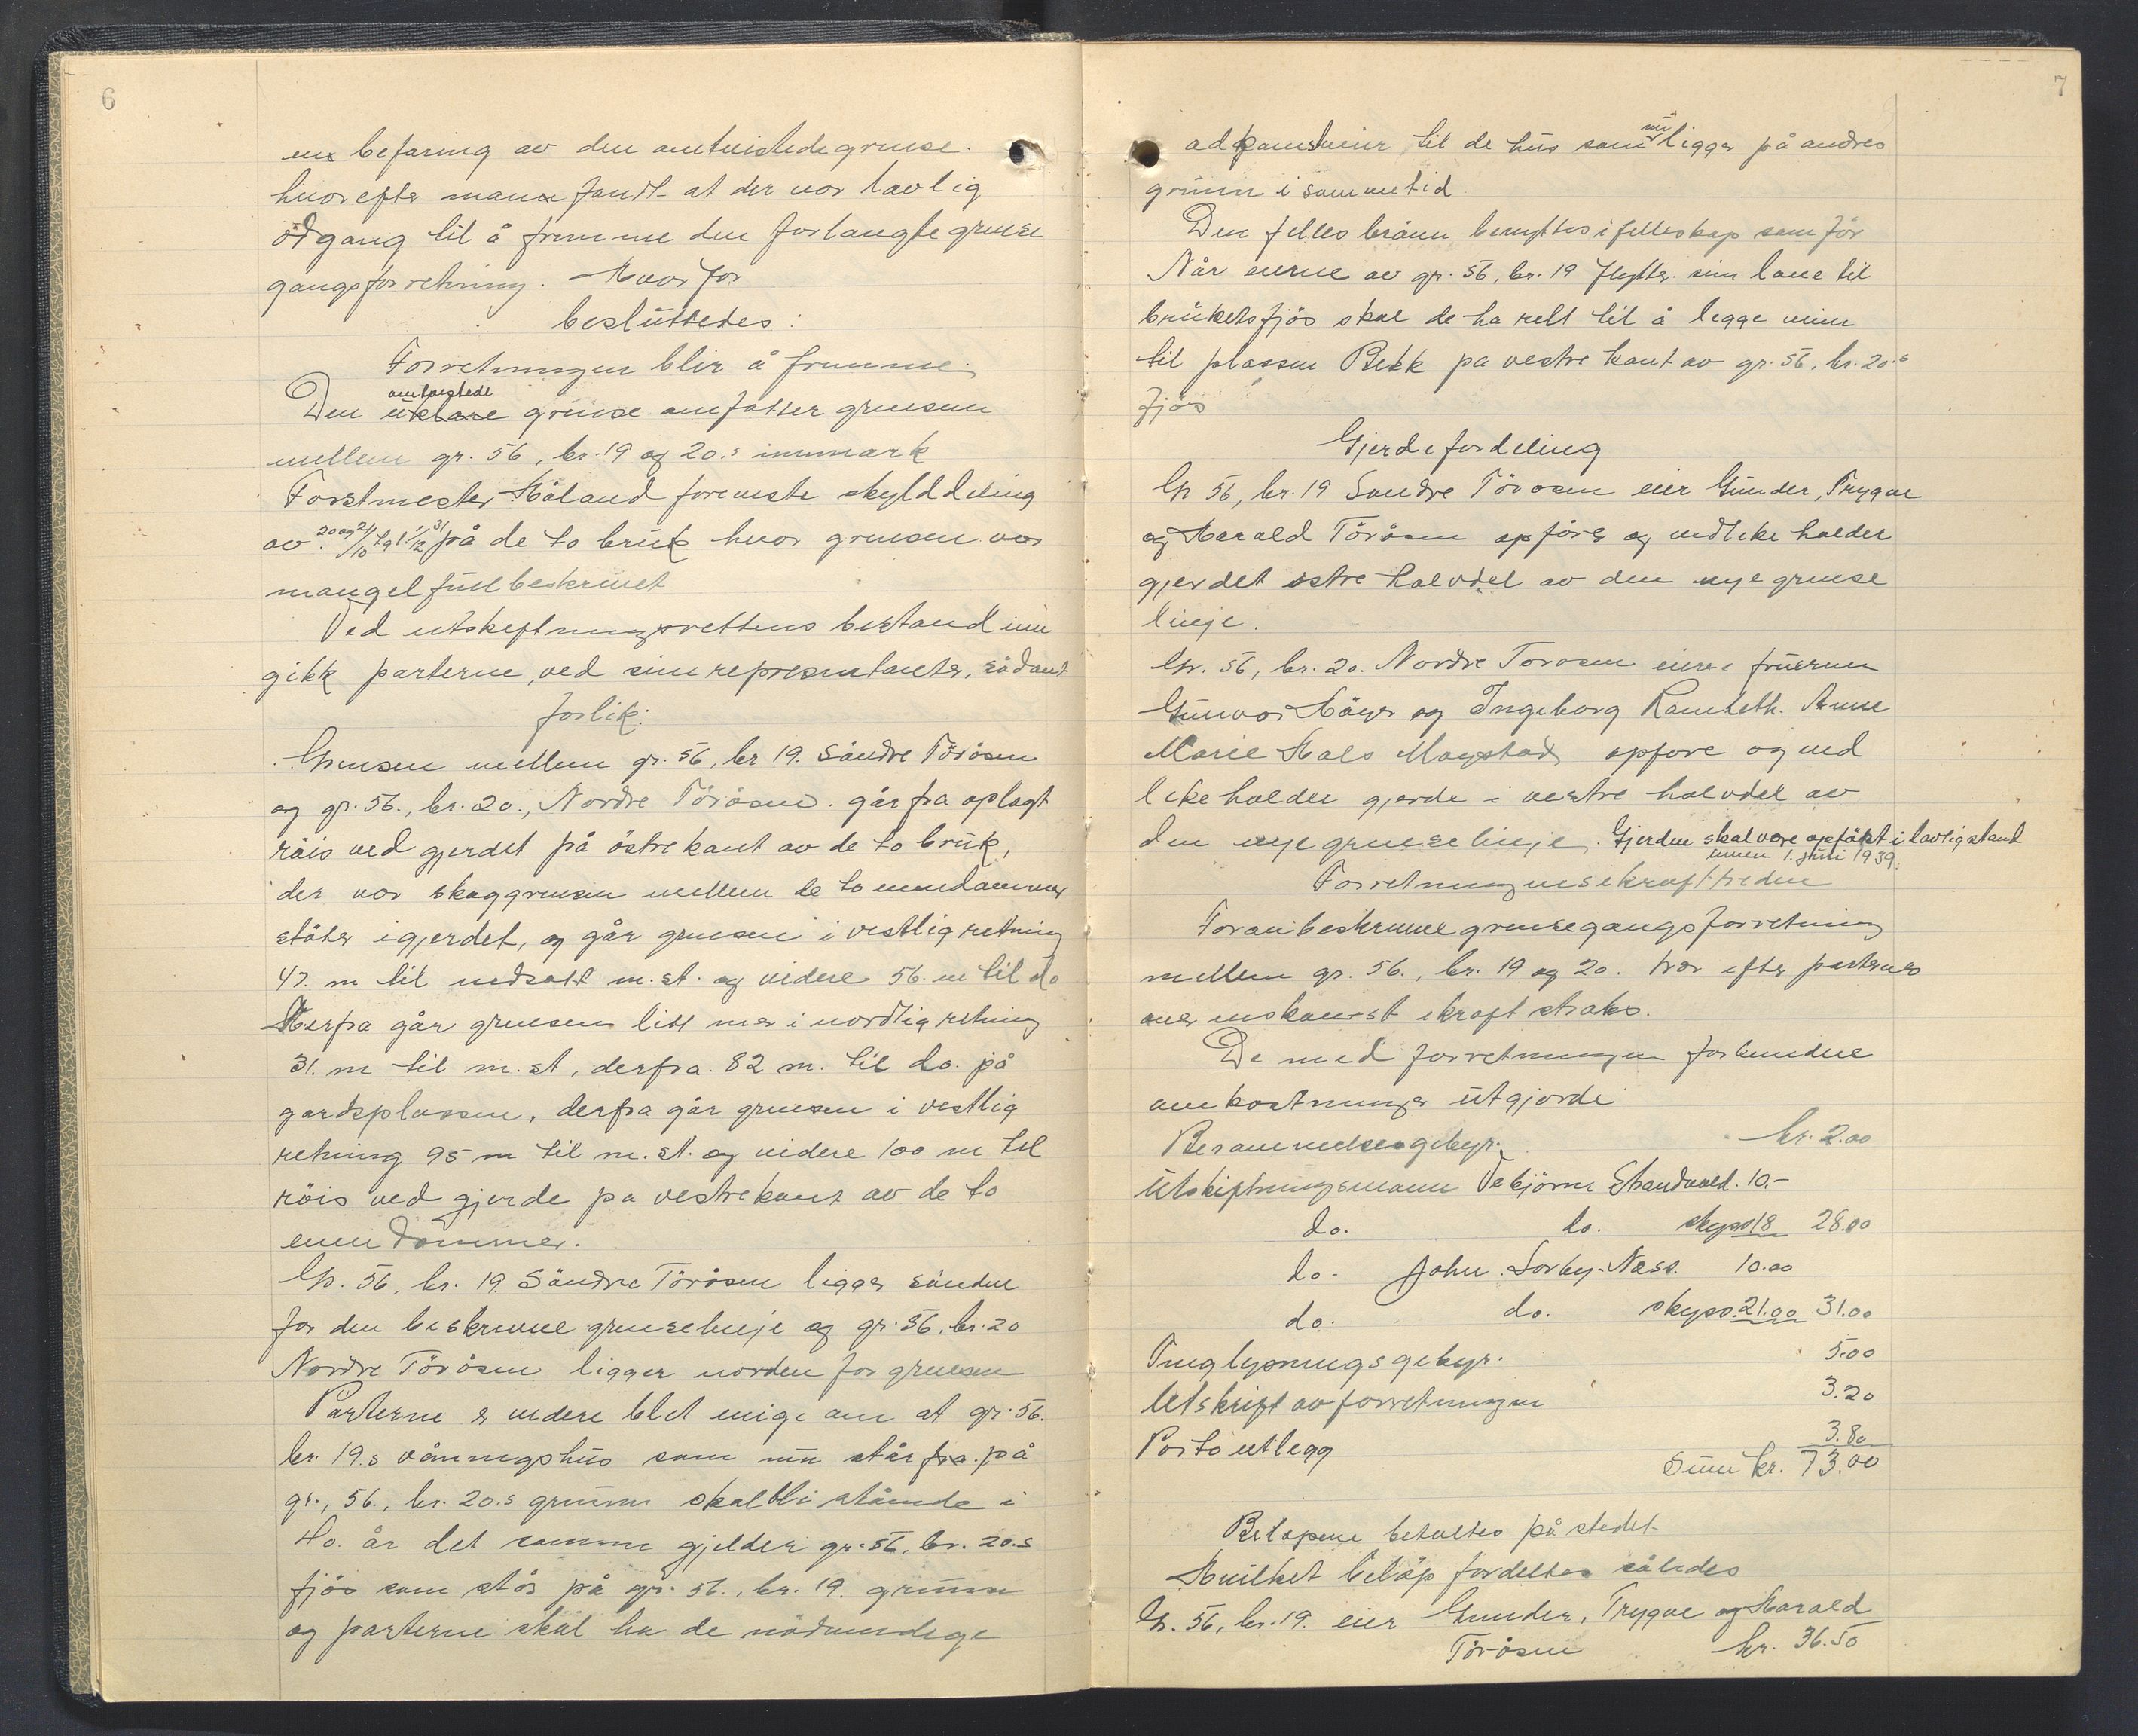 6
en befaring av den omtvistede grense.
hvorefter man fandt at der var lavlig
adgang til å fremme den forlangte grense
gangsforretning. Hvorfor
besluttedes:
Forretningen blir å fremme.
omtvistede
Den uklare grense omfatter grensen
mellem gr. 56, br. 19 og 20.s innmark
Forstmester Håland foreviste skylddeling
av 20 og 21/10 tgl 31/12 på de to bruk hvor grensen var
mangelfull beskrevet
Ved utskiftningsrettens bistand inn
gikk parterne, ved sine representanter, sådant
forlik:
Grensen mellem gr. 56, br 19. Söndre Töråsen
og gr. 56., br. 20., Nordre Töråsen. går fra oplagt
röis ved gjerdet på östre kant av de to bruk,
der vor skoggrensen mellem de to eiendommer
stöter i gjerdet, og går grensen i vestlig retning
47. m til nedsatt m. st. og videre 56. m til do
Herfra går grensen litt mer i nordlig retning
31. m til m. st, derfra. 82 m. til do. på
gardsplassen, derfra går grensen i vestlig
retning 95 m til m. st. og videre 100 m til
röis ved gjerde på vestre kant av de to
eiendommer.
Gr. 56, br. 19. Söndre Töråsen ligger sönden
for den beskrevne grenselinje og gr. 56, br. 20
Nordre Töråsen ligger norden for grensen
Parterne er videre blet enige om at gr. 56.
br. 19.s våningshus som nu står fra. på
gr., 56., br. 20.s grunn skal bli stående i
40. år det samme gjelder gr. 56, br. 20.s
fjös som står på gr. 56., br. 19. grunn
og parterne skal ha de nödvendige
7
adkomstveier til de hus som nu ligger på andres
grunn i samme tid
Den felles brönn benyttes i felleskap som för
Når eierne av gr. 56, br. 19 flytter sin låve til
brukets fjös skal de ha rett til å legge veien
til plassen Bekk på vestre kant av gr. 56, br. 20.s
fjös
Gjerdefordeling
Gr 56, br. 19 Söndre Töråsen eier Gunder, Trygve
og Harald Töråsen opförer og vedlikeholder
gjerdet östre halvdel av den nye grense
linje.
Gr. 56, br. 20. Nordre Töråsen eiere fruerne
Gunvor Höyer og Ingeborg Anne
Marie Hals opföre og ved
likeholder gjerde i vestre halvdel av
den nye grenselinje. Gjerden skal være opfört i lovlig stand
innen 1. juni 1939.
Forretningens ikrafttreden
Foranbeskrevne grensegangsforretning
mellem gr. 56., br. 19 og 20. trær efter parternes
overenskomst i kraft straks.
De med forretningen forbundne
omkostninger utgjorde
Berammelsesgebyr. kr. 2.00
Utskiftningsmann Strandvold. 10.-
do. do. skyss 18 28.00
do. John Sørby-Næss. 10.00
do. do. skyss. 21.00 31.00
Tinglysningsgebyr. 5.00
Utskrift av forretningen 3.20
Porto utlegg 3.80
Sum kr. 73.00
Belöpene betaltes på stedet.
Hvilket belöp fordeltes således
Gr. 56, br. 19. eier Gunder, Trygve og Harald
Töråsen kr. 36.50